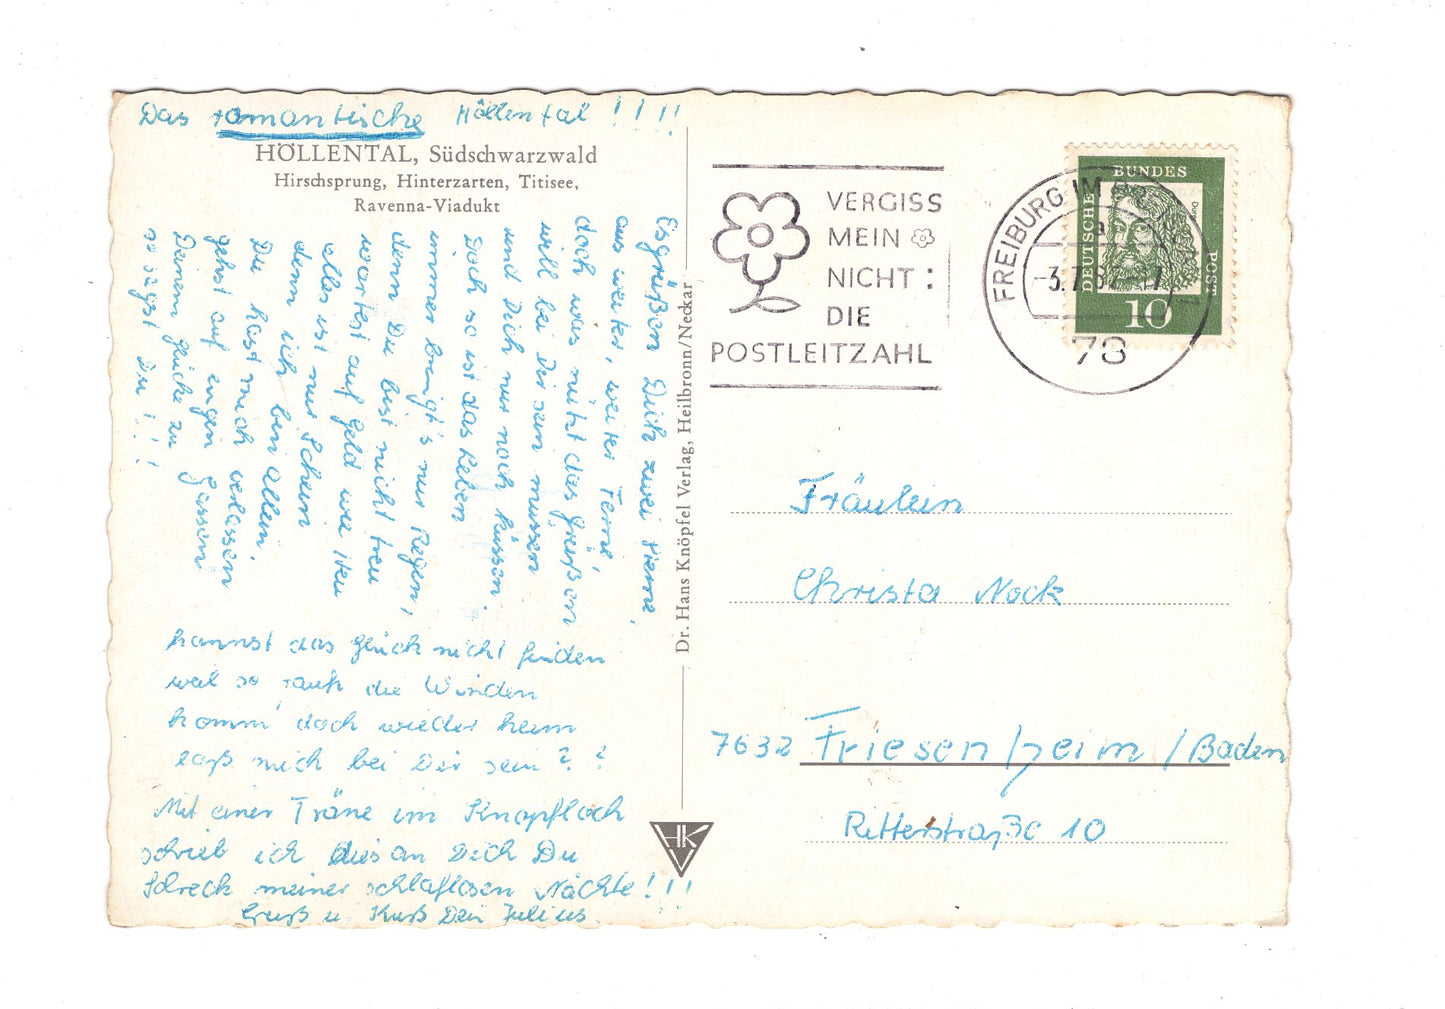 Das romantische Höllental !!!!
HÖLLENTAL, Südschwarzwald
Hirschsprung, Hinterzarten, Titisee,
Ravenna-Viadukt
Es grüßen Dich zwei Sterne,
aus weiter, weiter Ferne,
doch was nützt das Grüßen
will bei Dir sein müssen
und Dich nur noch küssen.
Doch so ist das Leben
immer bringt's nur Regen,
denn Du bist nicht treu
wartest auf Geld wie Heu
alles ist nur Schein
denn ich bin allein.
Du hast mich verlassen
gehst auf engen Gassen
Deinem Glücke zu
so sagst Du !!!
kannst das Glück nicht finden
weil so rauh die Winden
komm' doch wieder heim
laß mich bei Dir sein ? ?
Mit einer Träne im Knopfloch
schrieb ich dies an Dich Du
Schreck meiner schlaflosen Nächte!!!
Gruß u. Kuß Dein Julius.
Dr. Hans Knöpfel Verlag, Heilbronn/Neckar
HKV
VERGISS
MEIN
NICHT:
DIE
POSTLEITZAHL
FREIBURG IM
a
-3.7.62-17
78
DEUTSCHE BUNDESPOST
Dürer
10
Fräulein
Christa Nock
7632 Friesenheim / Baden
Ritterstraße 10